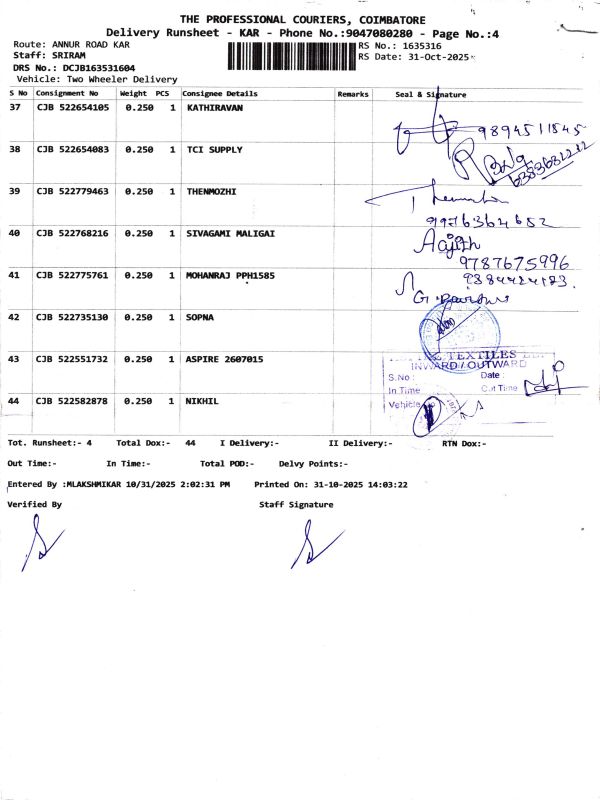 THE PROFESSIONAL COURIERS, COIMBATORE
Delivery Runsheet - KAR - Phone No.:9047080280 - Page No.:4
Route: ANNUR ROAD KAR
RS No.: 1635316
Staff: SRIRAM
RS Date: 31-Oct-2025
DRS No.: DCJB163531604
Vehicle: Two Wheeler Delivery
S No Consignment No Weight PCS Consignee Details Remarks Seal & Signature
37 CJB 522654105 0.250 1 KATHIRAVAN
9894511845
38 CJB 522654083 0.250 1 TCI SUPPLY
39 CJB 522779463 0.250 1 THENMOZHI
9976364652
40 CJB 522768216 0.250 1 SIVAGAMI MALIGAI
Aajith
9787675996
41 CJB 522775761 0.250 1 MOHANRAJ PPH1585
42 CJB 522735130 0.250 1 SOPNA
43 CJB 522551732 0.250 1 ASPIRE 2607015
TEXTILES
INWARD / OUTWARD
S.No : Date :
In Time Out Time
Vehicle
44 CJB 522582878 0.250 1 NIKHIL
Tot. Runsheet:- 4 Total Dox:- 44 I Delivery:- II Delivery:- RTN Dox:-
Out Time:- In Time:- Total POD:- Delvy Points:-
Entered By :MLAKSHMIKAR 10/31/2025 2:02:31 PM Printed On: 31-10-2025 14:03:22
Verified By Staff Signature